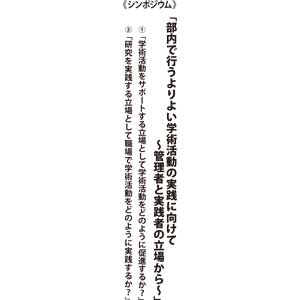 《シンポジウム》
「部内で行うよりよい学術活動の実践に向けて
～管理者と実践者の立場から～」
①「学術活動をサポートする立場として学術活動をどのように促進するか？」
②「研究を実践する立場として職場で学術活動をどのように実践するか？」